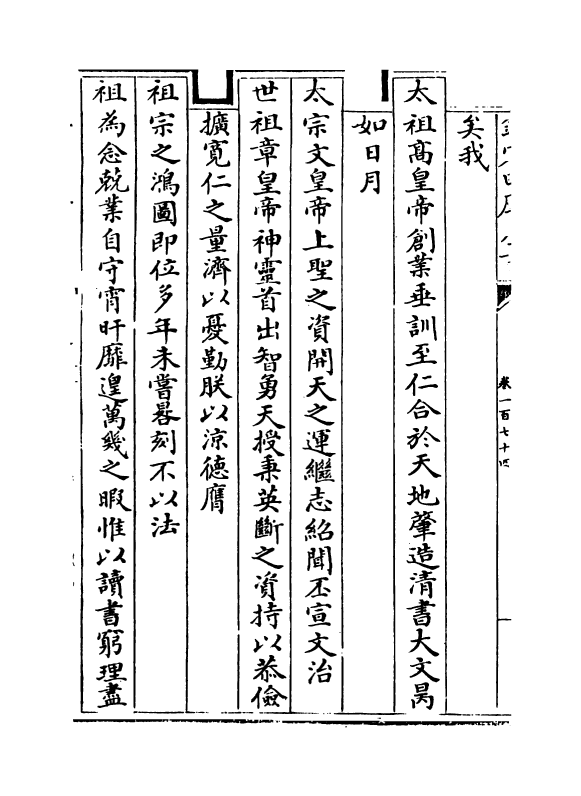 卷一百七十四
矣我
太祖髙皇帝創業垂訓至仁合於天地肇造清書大文昺
如日月
太宗文皇帝上聖之資開天之運繼志紹聞丕宣文治
世祖章皇帝神靈首出智勇天授秉英斷之資持以恭儉
擴寛仁之量濟以憂勤朕以涼德膺
祖宗之鴻圖即位多年未嘗晷刻不以法
祖為念兢業自守宵旰靡遑萬幾之暇惟以讀書窮理盡